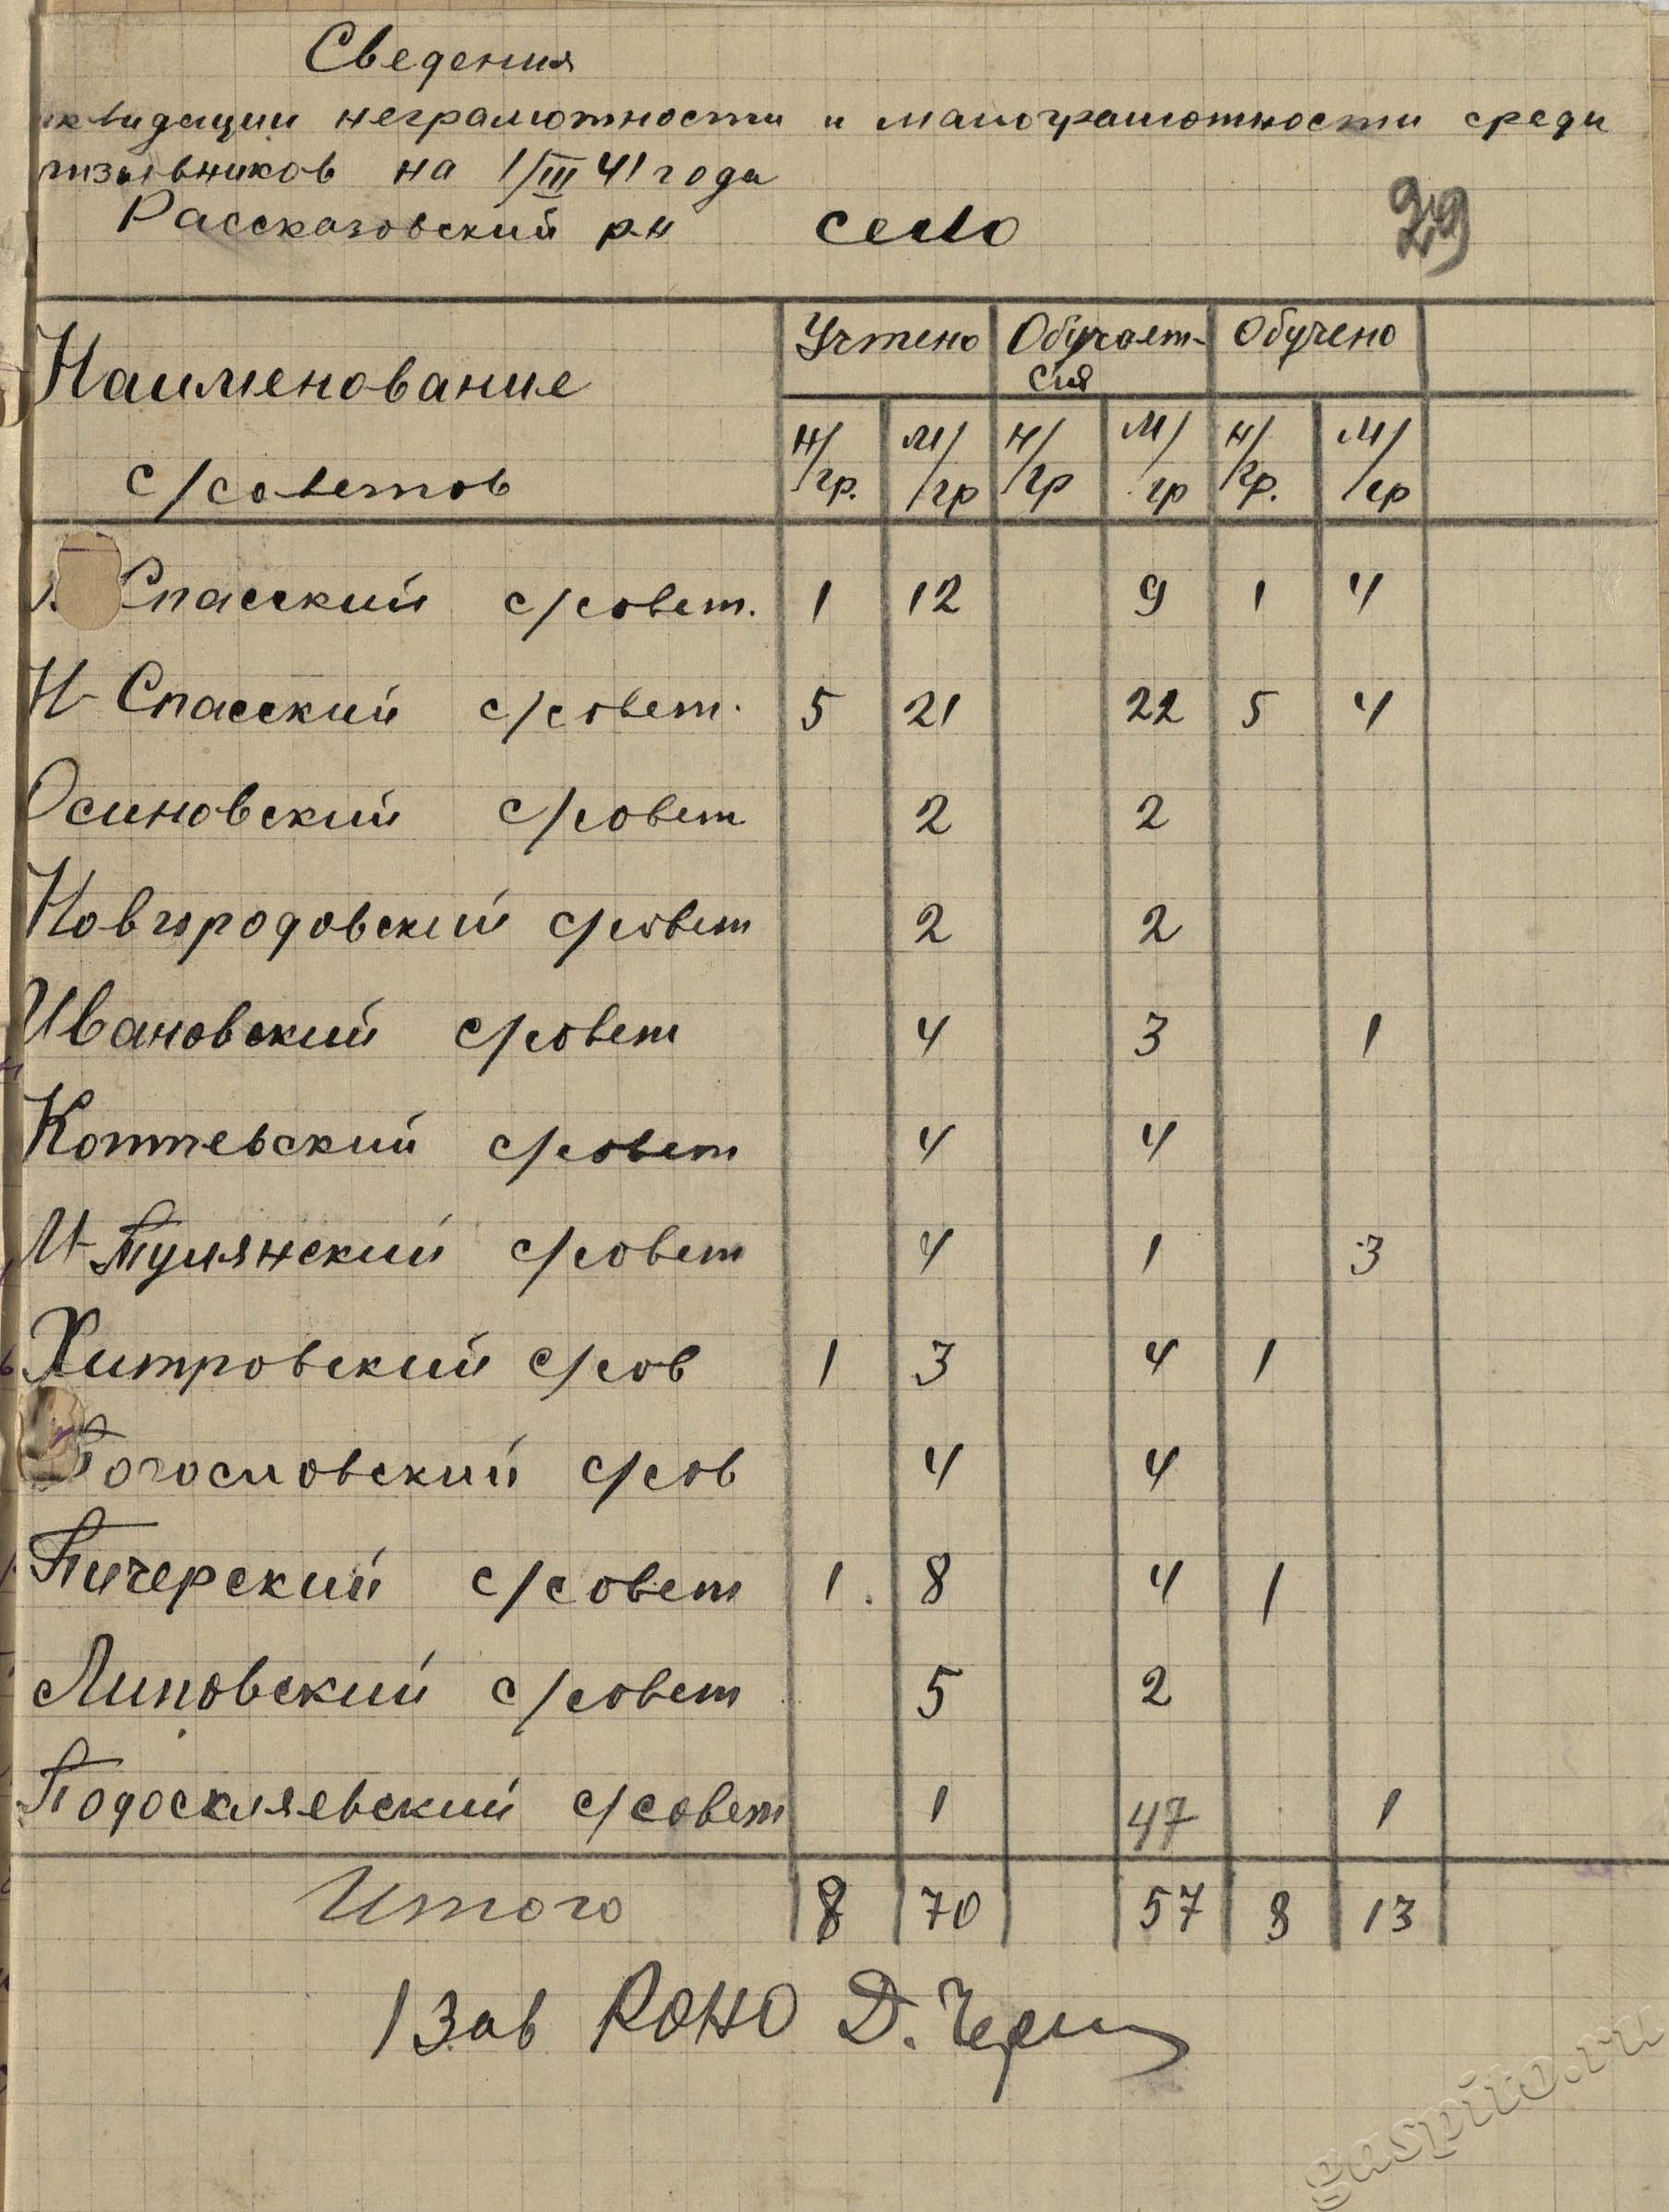 Сведения
иквидации неграмотности и малограмотности среди
ризывников на 1/III 41 года
Рассказовский р-н село 29
Наименование с/советов
Учтено Обучает-ся Обучено
н/гр. м/гр н/гр м/гр н/гр. м/гр
Спасский с/совет. 1 12 9 1 4
Н-Спасский с/совет. 5 21 22 5 4
Осиновский с/совет 2 2
Новгородовский с/совет 2 2
Ивановский с/совет 4 3 1
Коптевский с/совет 4 4
М-Тулянский с/совет 4 1 3
Хитровский с/сов 1 3 4 1
огословский с/сов 4 4
Пичерский с/совет 1. 8 4 1
Липовский с/совет 5 2
Подоскляевский с/совет 1 47 1
Итого 8 70 57 8 13
Зав РОНО Д.
gaspito.ru